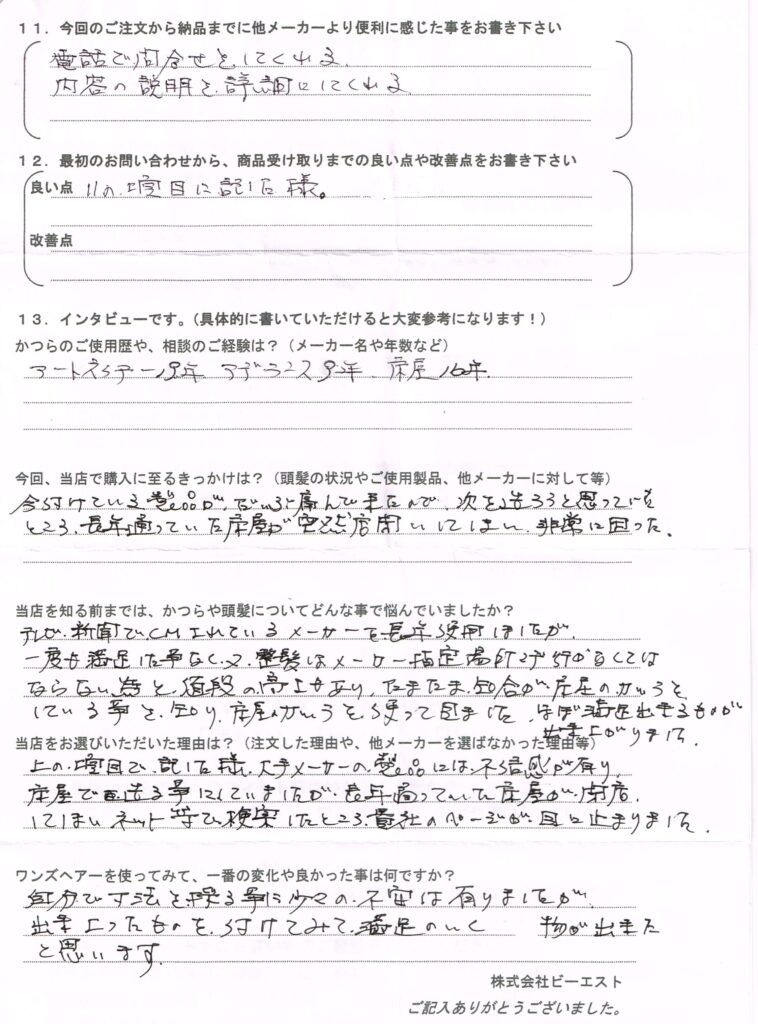 11．今回のご注文から納品までに他メーカーより便利に感じた事をお書き下さい
電話で問合せをしてくれる.
内容の説明を詳細にしてくれる
12．最初のお問い合わせから、商品受け取りまでの良い点や改善点をお書き下さい
良い点 11の項目に記した様。
改善点
13．インタビューです。（具体的に書いていただけると大変参考になります！）
かつらのご使用歴や、相談のご経験は？（メーカー名や年数など）
アートネイチャー 年 アデランス 年. 床屋 年.
今回、当店で購入に至るきっかけは？（頭髪の状況やご使用製品、他メーカーに対して等）
今付けている製品が、だいぶ痛んで来たので、次を造ろうと思っていた
ところ、長年通っていた床屋が突然店閉いしてしまい、非常に困った.
当店を知る前までは、かつらや頭髪についてどんな事で悩んでいましたか？
テレビ、新聞でCMされているメーカーを長年使用しましたが、
一度も満足した事なく、又、整髪はメーカー指定場所で行かなくては
ならない為と、値段の高さもあり、たまたま、知合が床屋のかつらを
している事を、知り、床屋のかつらを使って見ました、ほぼ満足出来るものが
出来上がりました.
当店をお選びいただいた理由は？（注文した理由や、他メーカーを選ばなかった理由等）
上の項目で、記した様、大手メーカーの製品には、不信感が有り、
床屋で造る事にしていましたが、長年通っていた床屋が、閉店、
してしまいネット等で、検索したところ、貴社のページが、目に止まりました.
ワンズヘアーを使ってみて、一番の変化や良かった事は何ですか？
自分で寸法を採る事に少々の、不安は有りましたが、
出来上ったものを、付けてみて、満足のいく 物が出来た
と思います.
株式会社ビーエスト
ご記入ありがとうございました。